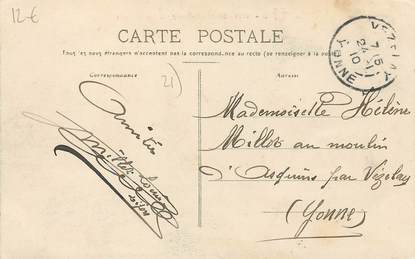 12 €
CARTE POSTALE
Tous les pays étrangers n'acceptent pas la correspondance au recto (se renseigner à la poste)
Correspondance
Adresse
21
VEZELAY
7 15
24 -11
10
YONNE
Amitiés
Millot
Mademoiselle Hélène
Millot au moulin
d'Asquins par Vézelay
(Yonne)